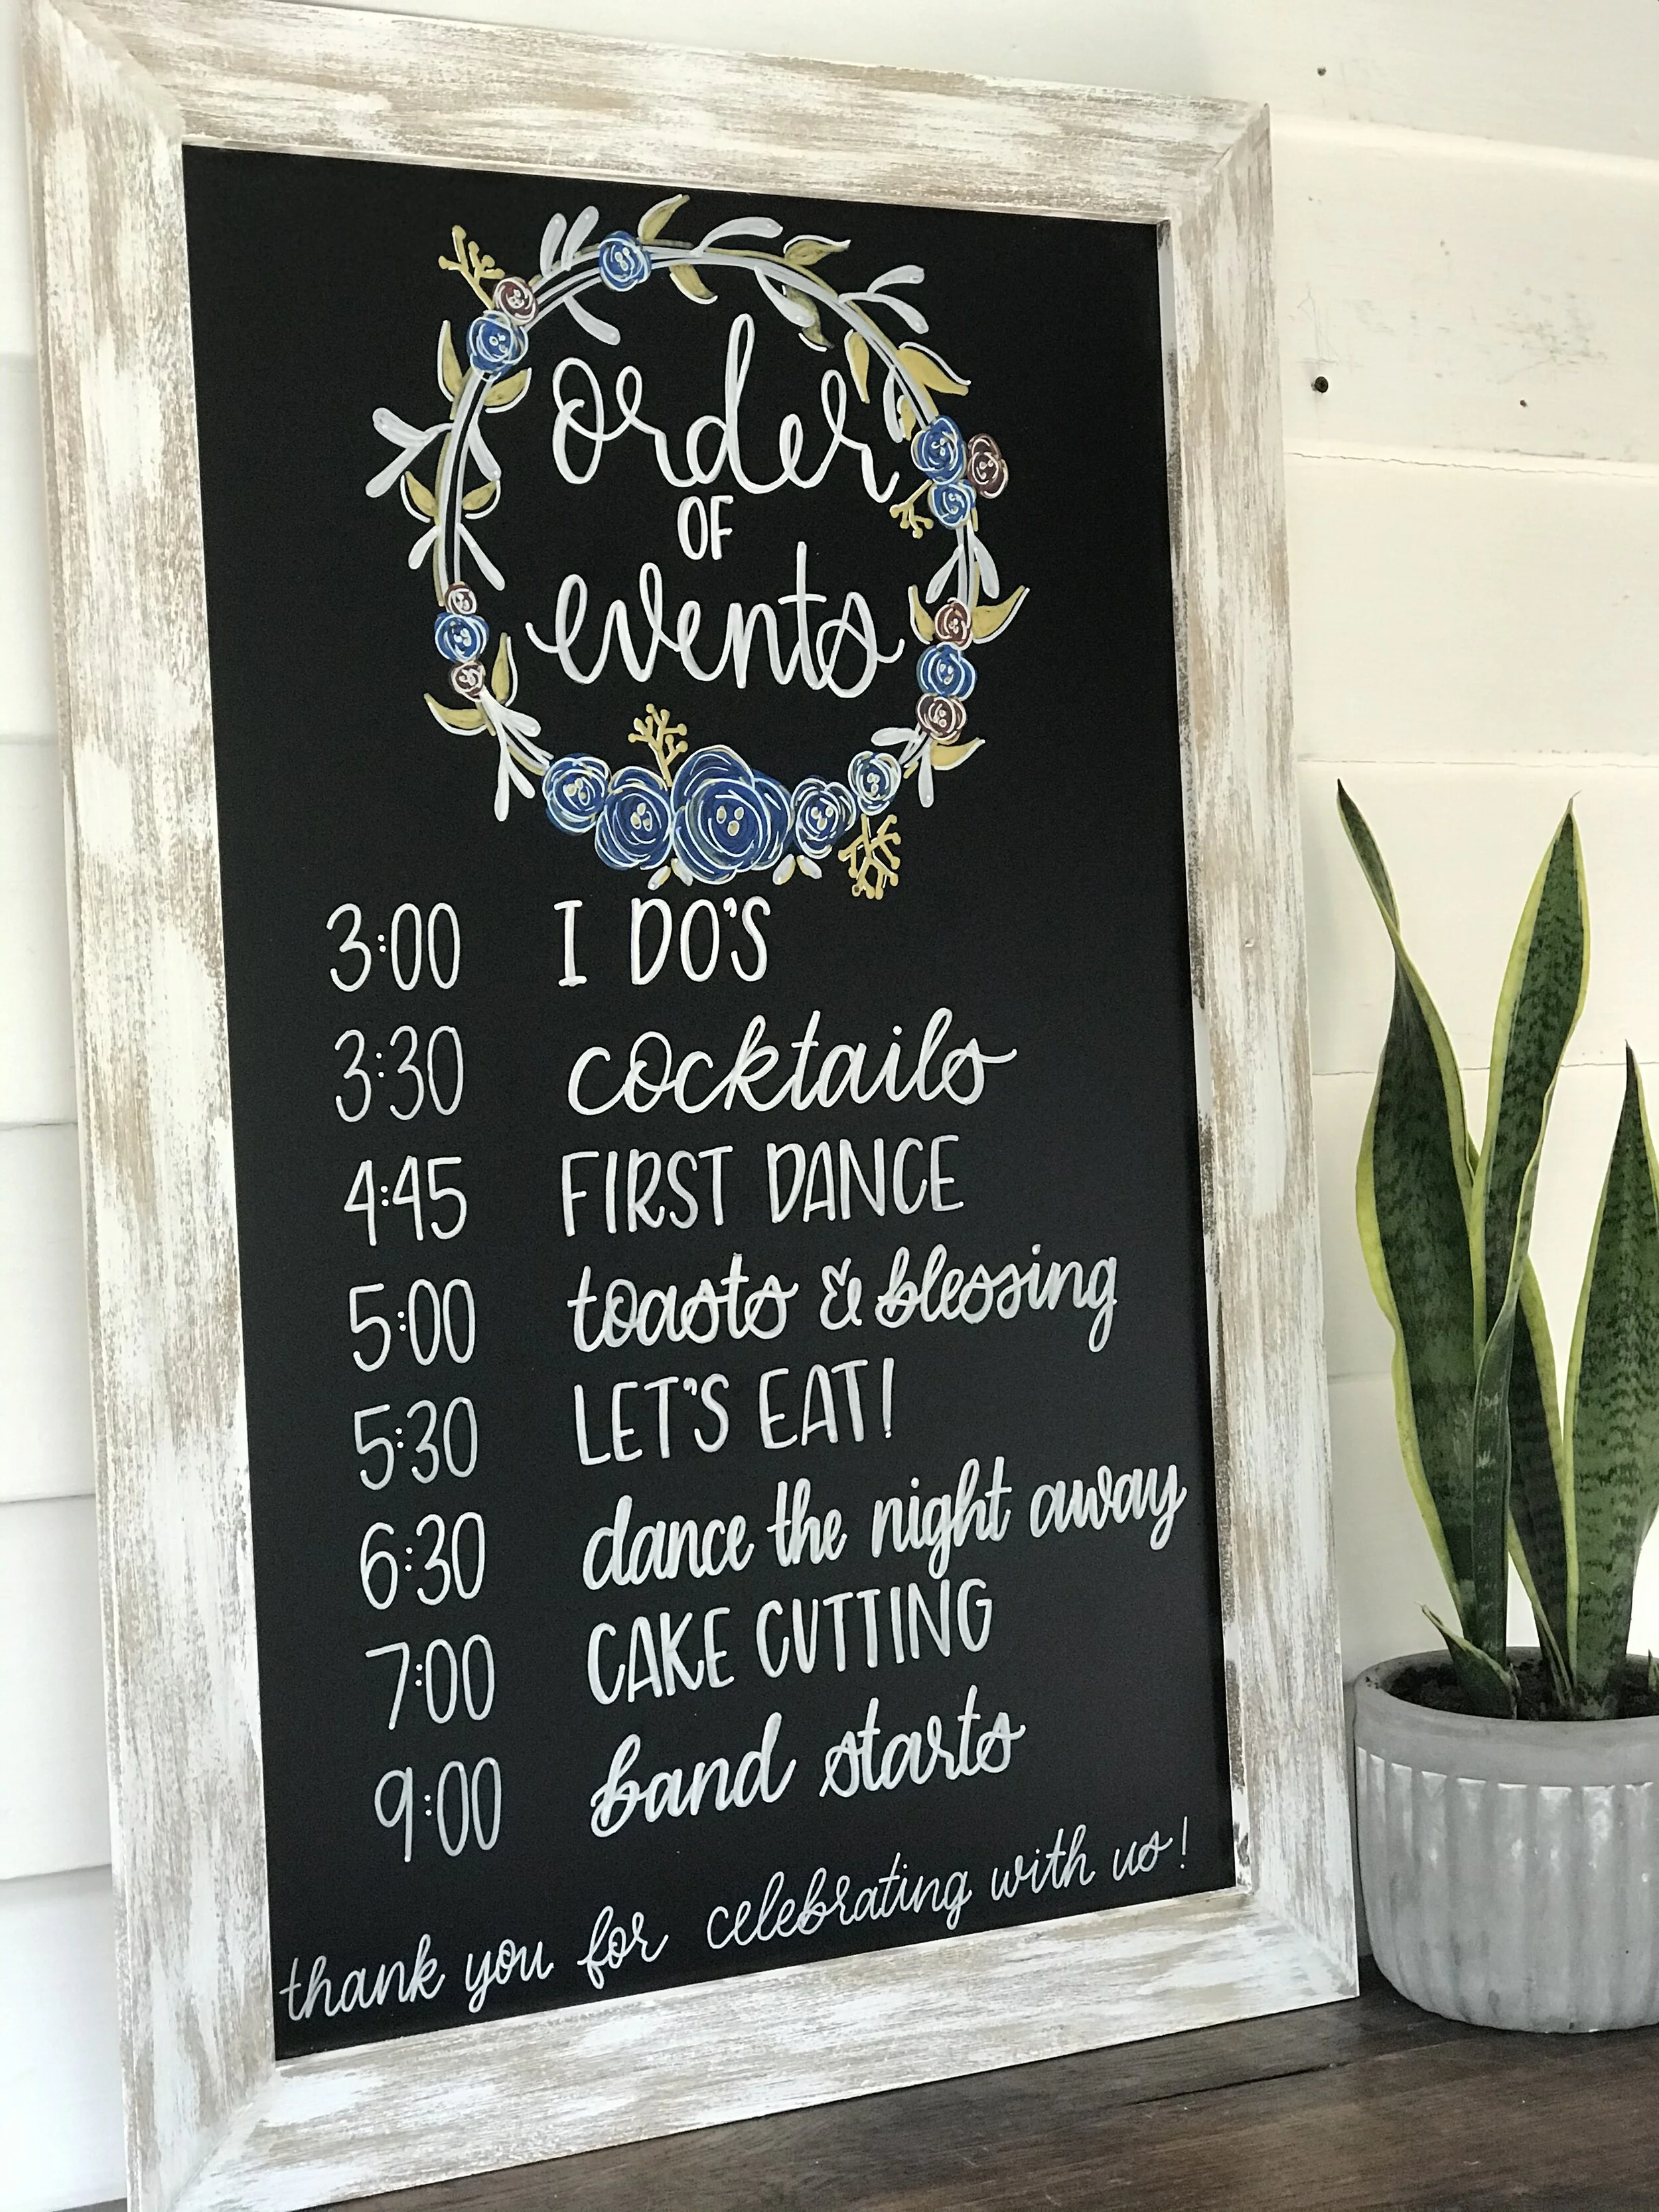 order
OF
events
3:00 I DO'S
3:30 cocktails
4:45 FIRST DANCE
5:00 toasts & blessing
5:30 LET'S EAT!
6:30 dance the night away
7:00 CAKE CUTTING
9:00 band starts
thank you for celebrating with us!